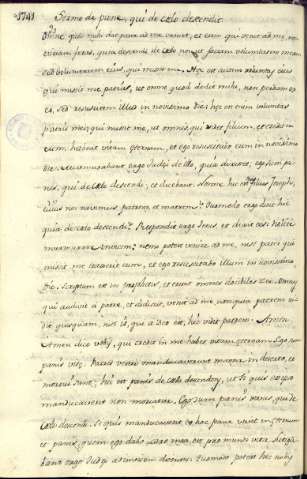 Sermo de pane, qui de celo descendit
Omne quod mihi dat pater ad me veniet, et eum qui venit ad me, non
eiiciam foras, quia descendi de celo non ut faciam voluntatem meam
sed voluntatem eius, qui misit me. Hec est autem voluntas eius
qui misit me patris, ut omne quod dedit mihi, non perdam ex
eo, sed resuscitem illud in novissimo die; hec est enim voluntas
patris mei, qui misit me, ut omnis, qui videt filium, et credit in
eum, habeat vitam eternam, et ego resuscitabo eum in novissimo
die. Murmurabant ergo Judei de illo, quia dixisset, ego sum pa-
nis, qui de celo descendi, et dicebant. Nonne hic est filius Joseph,
cuius nos novimus patrem, et matrem? Quomodo ergo dicit hic
quia de celo descendi? Respondit ergo Jesus, et dixit eis: Nolite
murmurare in invicem: nemo potest venire ad me, nisi pater qui
misit me traxerit eum, et ego resuscitabo illum in novissimo
die. Scriptum est in prophetis, et erunt omnes docibiles Dei. Omnis
qui audivit a patre, et didicit, venit ad me, non quia patrem vi-
dit quisquam, nisi is, qui a Deo est, hic vidit patrem. Amen
Amen dico vobis, qui credit in me habet vitam eternam. Ego sum
panis vite. Patres vestri manducaverunt manna in deserto, et
mortui sunt; hic est panis de celo descendens, ut si quis ex ipso
manducaverit non moriatur. Ego sum panis vivus, qui de
celo descendi. Si quis manducaverit ex hoc pane vivet in eternum
et panis, quem ego dabo caro mea est pro mundi vita. Litiga-
bant ergo Judei ad invicem dicentes. Quomodo potest hic nobis